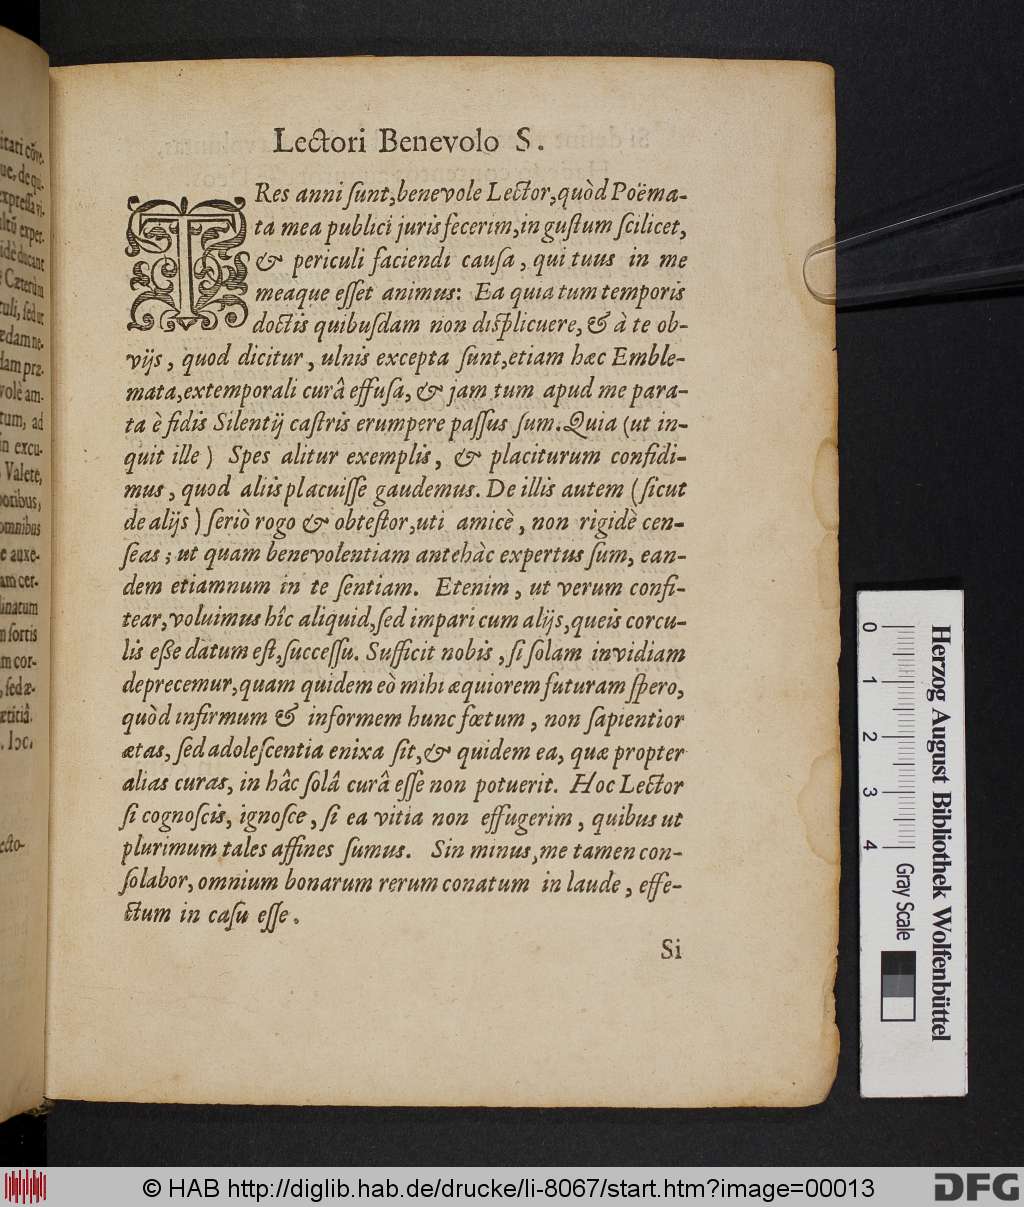 Lectori Benevolo S.
TRes anni ſunt, benevole Lector, quòd Poëma-
ta mea publici juris fecerim, in guſtum ſcilicet,
& periculi faciendi cauſa, qui tuus in me
meaque eſſet animus: Ea quia tum temporis
doctis quibuſdam non diſplicuere, & à te ob-
vijs, quod dicitur, ulnis excepta ſunt, etiam hæc Emble-
mata, extemporali curâ effuſa, & jam tum apud me para-
ta è fidis Silentij caſtris erumpere paſſus ſum. Quia (ut in-
quit ille) Spes alitur exemplis, & placiturum confidi-
mus, quod aliis placuiſſe gaudemus. De illis autem (ſicut
de alijs) ſeriò rogo & obteſtor, uti amicè, non rigidè cen-
ſeas; ut quam benevolentiam antehàc expertus ſum, ean-
dem etiamnum in te ſentiam. Etenim, ut verum confi-
tear, voluimus hîc aliquid, ſed impari cum alijs, queis corcu-
lis eße datum eſt, ſucceſſu. Sufficit nobis, ſi ſolam invidiam
deprecemur, quam quidem eò mihi æquiorem futuram ſpero,
quòd infirmum & informem hunc fœtum, non ſapientior
ætas, ſed adoleſcentia enixa ſit, & quidem ea, quæ propter
alias curas, in hâc ſolâ curâ eſſe non potuerit. Hoc Lector
ſi cognoſcis, ignoſce, ſi ea vitia non effugerim, quibus ut
plurimum tales affines ſumus. Sin minus, me tamen con-
ſolabor, omnium bonarum rerum conatum in laude, effe-
ctum in caſu eſſe.
Si
itati cõve-
ue, de qui-
expreſſa vi-
expet.
idè ducant
Cæterùm
culi, ſed ut
ædam ne-
dam præ-
volè am-
tum, ad
in excu-
Valete,
omnibus
e auxe-
am cer-
linatum
n ſortis
m cor-
, ſed æ-
ætitiâ.
ecto-
0 1 2 3 4
Gray Scale
Herzog August Bibliothek Wolfenbüttel
© HAB http://diglib.hab.de/drucke/li-8067/start.htm?image=00013
DFG